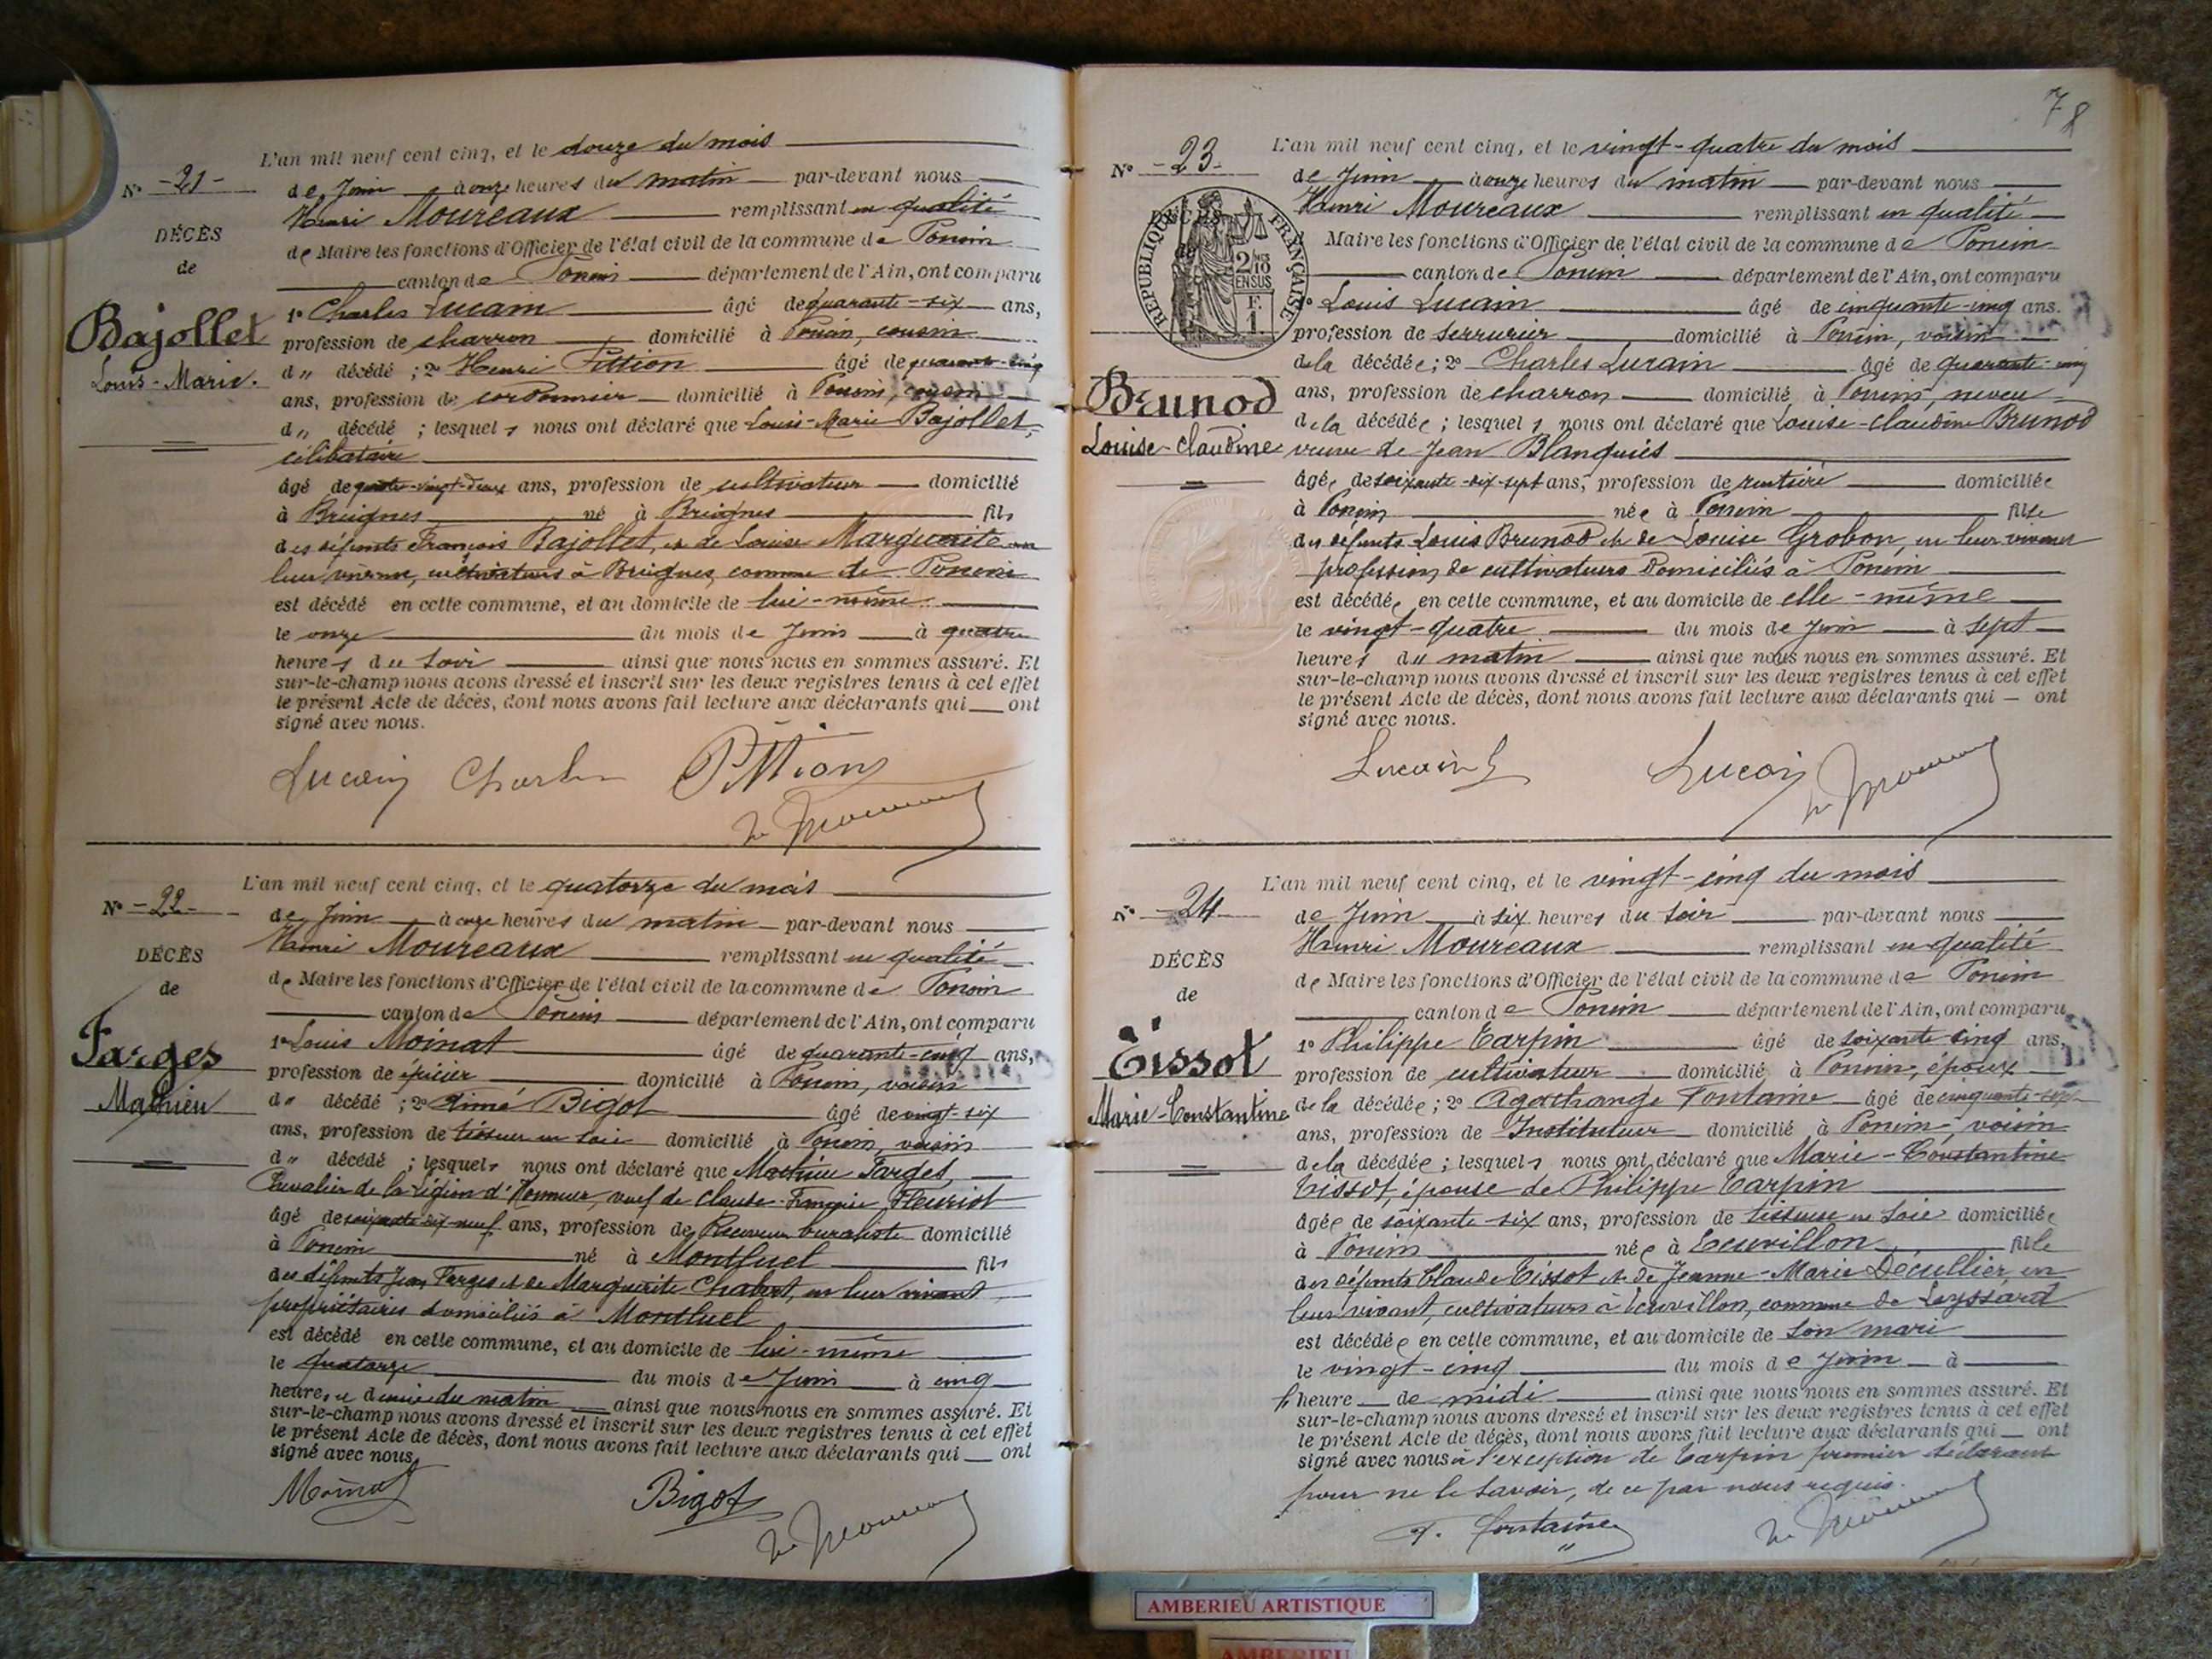 L'an mil neuf cent cinq, et le douze du mois
N° -21-
de Juin à onze heures du matin par-devant nous
Henri Moureaux remplissant en qualité
DÉCÈS
de Maire les fonctions d'Officier de l'état civil de la commune de Poncin
de
canton de Poncin département de l'Ain, ont comparu
1° Charles Lucain âgé de quarante-six ans,
Bajollet
profession de charron domicilié à Poncin, cousin
Louis-Marie.
d u décédé ; 2° Henri Pittion âgé de quarante-cinq
ans, profession de cordonnier domicilié à Poncin, cousin
d u décédé ; lesquels nous ont déclaré que Louis-Marie Bajollet,
célibataire
âgé de quatre-vingt-deux ans, profession de cultivateur domicilié
à Breignes né à Breignes fils
des défunts François Bajollet, et de Louise Marguerite en
leur vivant, cultivateurs à Breignes, commune de Poncin
est décédé en cette commune, et au domicile de lui-même
le onze du mois de Juin à quatre
heures du soir ainsi que nous nous en sommes assuré. Et
sur-le-champ nous avons dressé et inscrit sur les deux registres tenus à cet effet
le présent Acte de décès, dont nous avons fait lecture aux déclarants qui ont
signé avec nous.
Lucain Charles Pittion
H. Moureaux
L'an mil neuf cent cinq, et le quatorze du mois
N° -22-
de Juin à onze heures du matin par-devant nous
Henri Moureaux remplissant en qualité
DÉCÈS
de Maire les fonctions d'Officier de l'état civil de la commune de Poncin
de
canton de Poncin département de l'Ain, ont comparu
Farges
1° Louis Moinat âgé de quarante-cinq ans,
profession de épicier domicilié à Poncin, voisin
Mathieu
d u décédé ; 2° Aimé Bigot âgé de vingt-six
ans, profession de tisseur en soie domicilié à Poncin, voisin
d u décédé ; lesquels nous ont déclaré que Mathieu Farges,
Chevalier de la Légion d'Honneur, veuf de Claude-Françoise Fleuriot
âgé de soixante-dix-neuf ans, profession de Receveur buraliste domicilié
à Poncin né à Montluel fils
des défunts Jean Farges et de Marguerite Chabert, en leur vivant
propriétaires domiciliés à Montluel
est décédé en cette commune, et au domicile de lui-même
le quatorze du mois de Juin à cinq
heures et demie du matin ainsi que nous nous en sommes assuré. Et
sur-le-champ nous avons dressé et inscrit sur les deux registres tenus à cet effet
le présent Acte de décès, dont nous avons fait lecture aux déclarants qui ont
signé avec nous
Moinat Bigot
H. Moureaux
78
L'an mil neuf cent cinq, et le vingt-quatre du mois
N° -23-
de Juin à onze heures du matin par-devant nous
Henri Moureaux remplissant en qualité
DÉCÈS
de
RÉPUBLIQUE FRANÇAISE
2/10 EN SUS
1 F.
Maire les fonctions d'Officier de l'état civil de la commune de Poncin
canton de Poncin département de l'Ain, ont comparu
Louis Lucain âgé de cinquante-cinq ans.
profession de serrurier domicilié à Poncin, voisin
de la décédée ; 2° Charles Lucain âgé de quarante-cinq
Brunod
ans, profession de charron domicilié à Poncin, neveu
de la décédée ; lesquels nous ont déclaré que Louise-Claudine Brunod
Louise-Claudine
veuve de Jean Blanquies
âgée de soixante-dix-sept ans, profession de rentière domiciliée
à Poncin née à Poncin fille
des défunts Louis Brunod et de Louise Grobon, en leur vivant
profession de cultivateurs domiciliés à Poncin
est décédée en cette commune, et au domicile de elle-même
le vingt-quatre du mois de Juin à sept
heures du matin ainsi que nous nous en sommes assuré. Et
sur-le-champ nous avons dressé et inscrit sur les deux registres tenus à cet effet
le présent Acte de décès, dont nous avons fait lecture aux déclarants qui ont
signé avec nous.
Lucain L Lucain
H. Moureaux
L'an mil neuf cent cinq, et le vingt-cinq du mois
N° 24
de Juin à six heures du soir par-devant nous
Henri Moureaux remplissant en qualité
DÉCÈS
de Maire les fonctions d'Officier de l'état civil de la commune de Poncin
de
canton de Poncin département de l'Ain, ont comparu
Tissot
1° Philippe Tarpin âgé de soixante cinq ans,
profession de cultivateur domicilié à Poncin, époux
Marie-Constantine
de la décédée ; 2° Agathange Fontaine âgé de cinquante-sept
ans, profession de Instituteur domicilié à Poncin, voisin
de la décédée ; lesquels nous ont déclaré que Marie-Constantine
Tissot, épouse de Philippe Tarpin
âgée de soixante-six ans, profession de tisseuse en soie domiciliée
à Poncin née à Écuvillon fille
des défunts Claude Tissot et de Jeanne-Marie Décullier en
leur vivant, cultivateurs à Écuvillon, commune de Leyssard
est décédée en cette commune, et au domicile de son mari
le vingt-cinq du mois de Juin à
l'heure de midi ainsi que nous nous en sommes assuré. Et
sur-le-champ nous avons dressé et inscrit sur les deux registres tenus à cet effet
le présent Acte de décès, dont nous avons fait lecture aux déclarants qui ont
signé avec nous à l'exception de Tarpin premier déclarant
pour ne le savoir, de ce par nous requis.
A. Fontaine H. Moureaux
AMBERIEU ARTISTIQUE
AMBERIEU